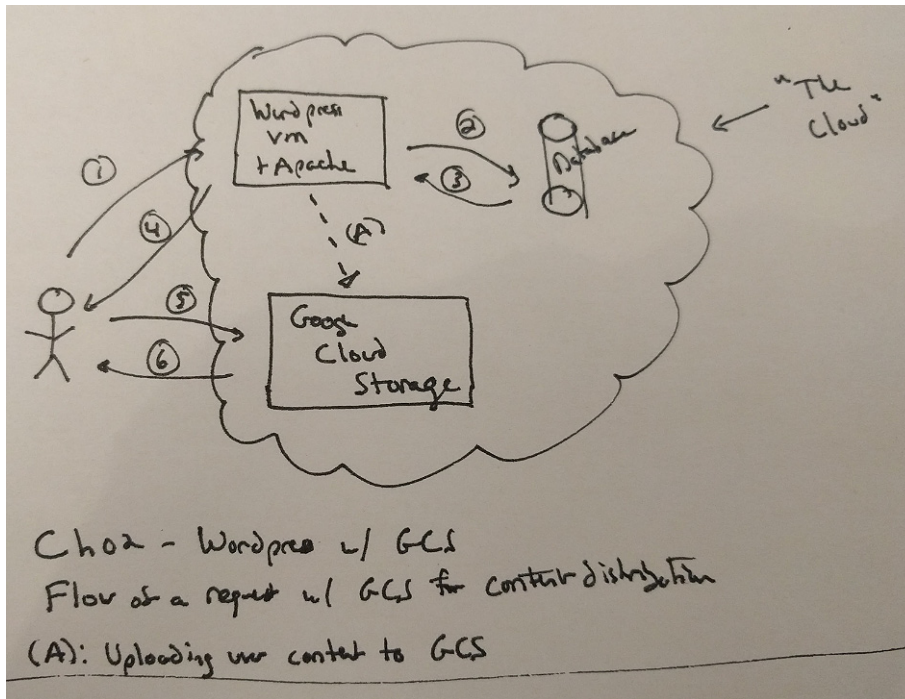 "The
Cloud"
Wordpress
VM
+ Apache
Database
①
②
③
④
(A)
⑤
⑥
Google
Cloud
Storage
Ch02 - Wordpress w/ GCS
Flow of a request w/ GCS for content distribution
(A): Uploading user content to GCS